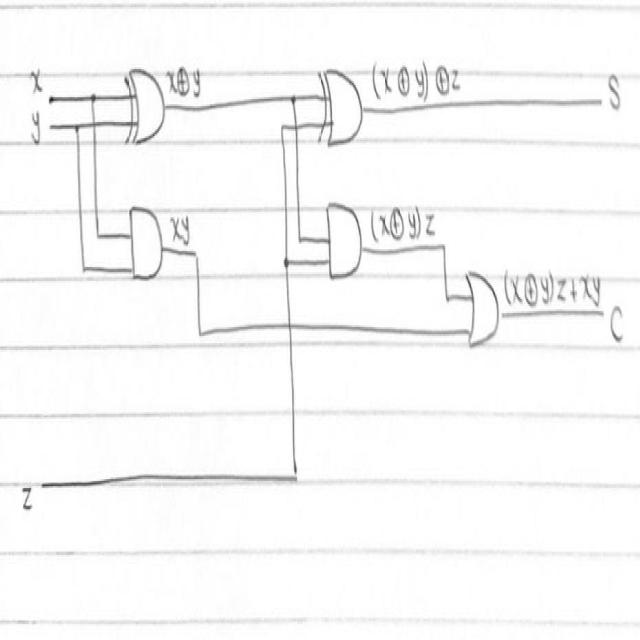 x
x⊕y
(x⊕y)⊕z
S
y
xy
(x⊕y)z
(x⊕y)z+xy
C
z